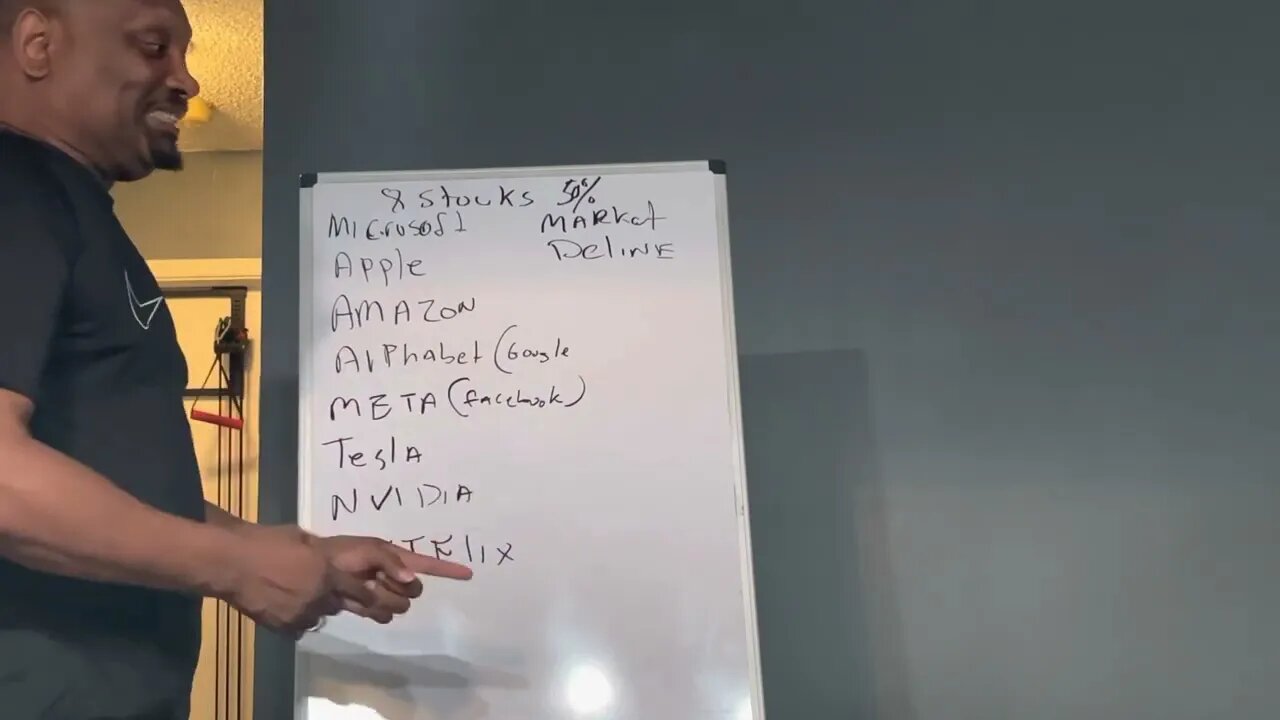 8 Stocks 50%
Microsoft
MARKet
DeliNE
Apple
AMAZON
Alphabet (Google
META (facebook)
TeslA
NVIDIA